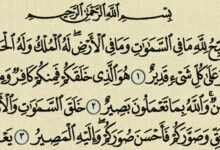 بِسْمِ اللَّهِ الرَّحْمَٰنِ الرَّحِيمِ
لِلَّهِ مَا فِي السَّمَٰوَٰتِ وَمَا فِي الْأَرْضِ ۖ لَهُ الْمُلْكُ وَلَهُ
عَلَىٰ كُلِّ شَيْءٍ قَدِيرٌ ١ هُوَ الَّذِي خَلَقَكُمْ فَمِنكُمْ كَافِرٌ
وَاللَّهُ بِمَا تَعْمَلُونَ بَصِيرٌ ٢ خَلَقَ السَّمَٰوَٰتِ
وَصَوَّرَكُمْ فَأَحْسَنَ صُوَرَكُمْ ۖ وَإِلَيْهِ الْمَصِيرُ ٣